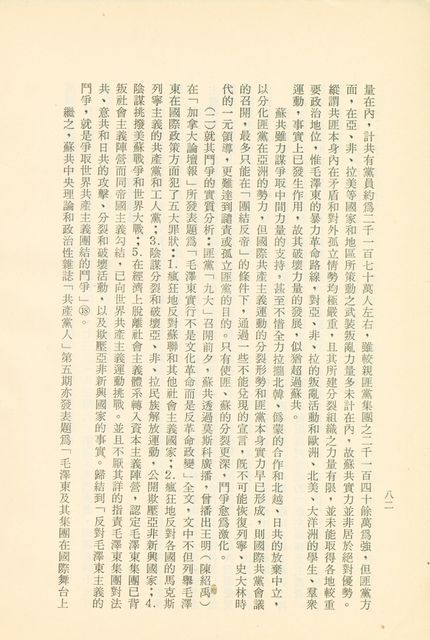 八二
量在內，計共有黨員約爲二千一百七十萬人左右，雖較親匪黨集團之二千一百四十餘萬爲強，但匪黨方
面，在亞、非、拉美等國家和地區所策動之武装叛亂力量多未計在內，故蘇共實力並非居於絕對優勢。
縱謂共匪本身內在矛盾和對外孤立情勢均極嚴重，且其所建分裂組織之力量有限，並未能取得各地較重
要政治地位，惟毛澤東的暴力革命路線，對亞、非、拉的叛亂活動和歐洲、北美、大洋洲的學生、羣衆
運動，事實上已發生作用，故其破壞力量的發展，似猶超過蘇共。
蘇共雖力謀爭取中間力量的支持，甚至不惜全力拉攏北韓、僞蒙的合作和北越、日共的放棄中立，
以分化匪黨在亞洲的勢力，但國際共產主義運動的分裂形勢和匪黨本身實力早已形成，則國際共黨會議
的召開，最多只能在「團結反帝」的條件下，通過一些不能兌現的宣言，旣不可能恢復列寧、史大林時
代的一元領導，更難達到譴責或孤立匪黨的目的。只有使匪、蘇的分裂更深，鬥爭愈爲激化。
㈡就其鬥爭的實質分析：匪黨「九大」召開前夕，蘇共透過莫斯科廣播，曾播出王明（陳紹禹）
在「加拿大論壇報」所發表題爲「毛澤東實行不是文化革命而是反革命政變」全文，文中不但列舉毛澤
東在國際政策方面犯了五大罪狀：1.瘋狂地反對蘇聯和其他社會主義國家；2.瘋狂地反對各國的馬克斯
列寧主義的共產黨和工人黨；3.陰謀分裂和破壞亞、非、拉民族解放運動，公開欺壓亞非新興國家；4.
陰謀挑撥美蘇戰爭和世界大戰；5.在經濟上脫離社會主義體系轉入資本主義陣營，認定毛澤東集團已背
叛社會主義陣營而同帝國主義勾結，已向世界共產主義運動挑戰。並且不厭其詳的指責毛澤東集團對法
共、意共和日共的攻擊、分裂和破壞活動，以及欺壓亞非新興國家的事實。歸結到「反對毛澤東主義的
鬥爭，就是爭取世界共產主義團結的鬥爭」⑱。
繼之，蘇共中央理論和政治性雜誌「共產黨人」第五期亦發表題爲「毛澤東及其集團在國際舞台上